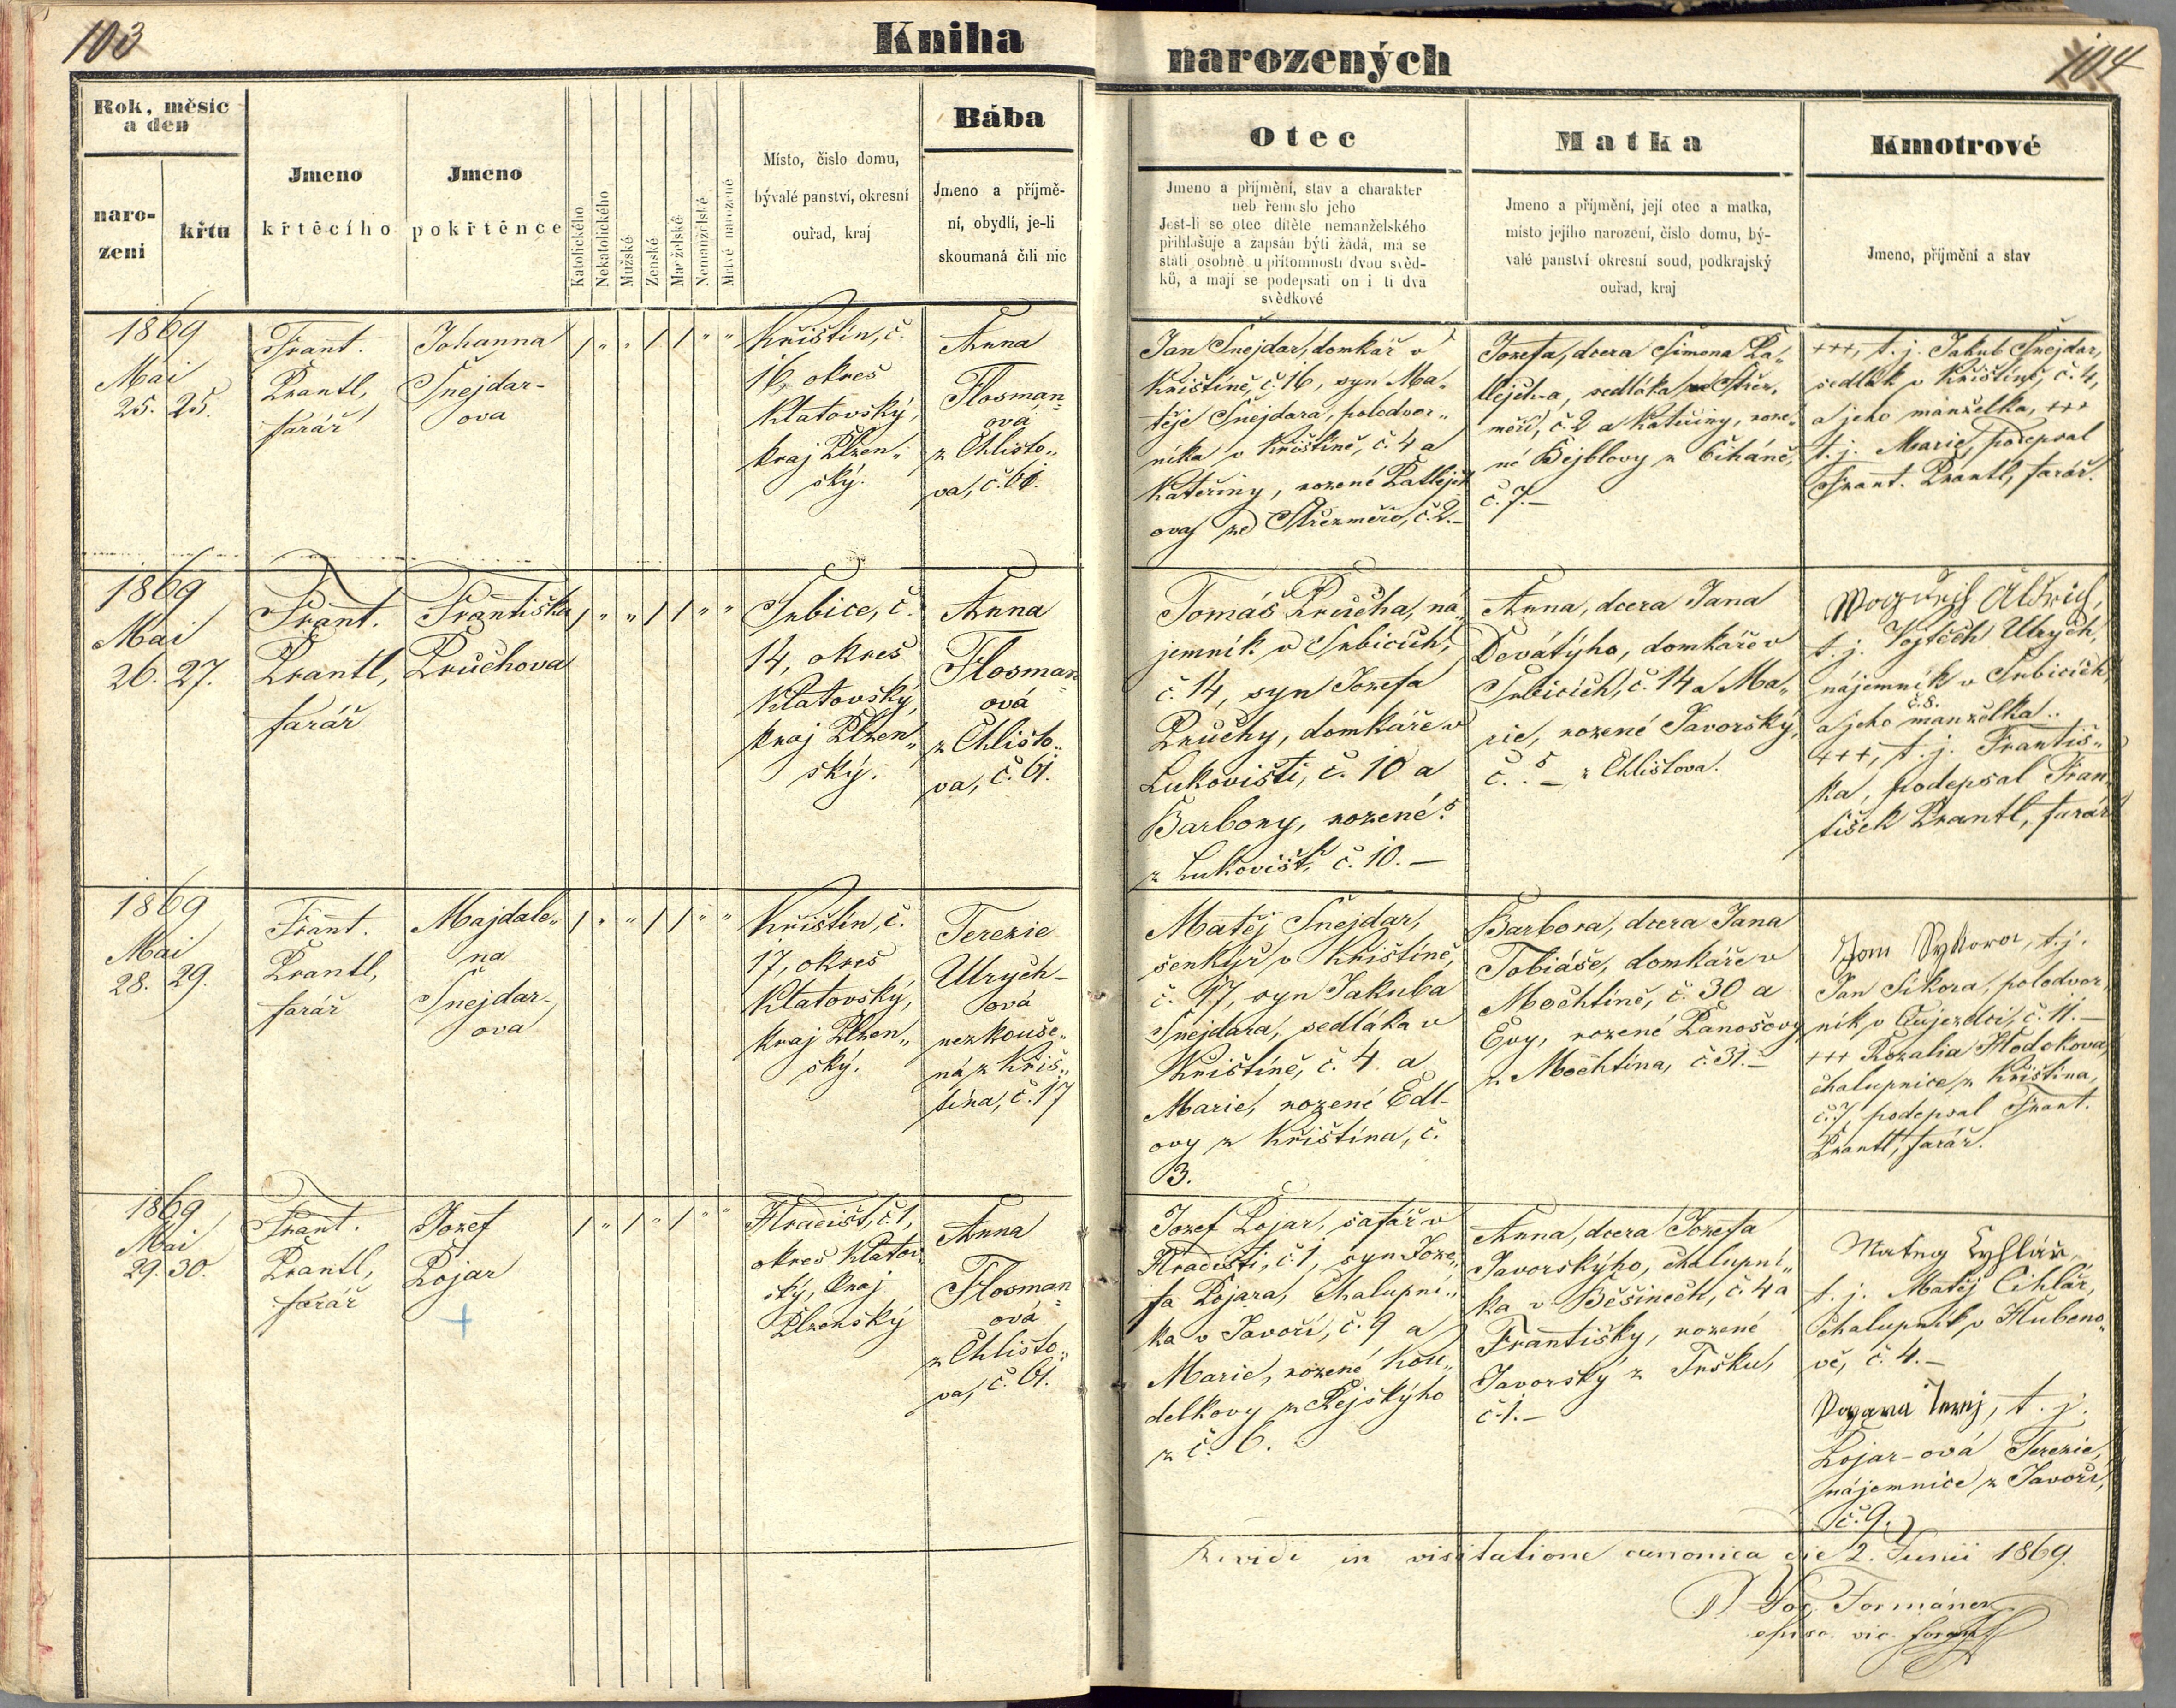 103
Kniha
narozených
104
Rok, měsíc
a den
naro-
zení
křtu
Jmeno
křtěcího
Jmeno
pokřtěnce
Katolického
Nekatolického
Mužské
Ženské
Manželské
Nemanželské
Mrtvě narozené
Místo, číslo domu,
bývalé panství, okresní
ouřad, kraj
Bába
Jmeno a příjmě-
ní, obydlí, je-li
skoumaná čili nic
Otec
Jmeno a příjmění, stav a charakter
neb řemeslo jeho
Jest-li se otec dítěte nemanželského
přihlašuje a zapsán býti žádá, má se
státi osobně u přítomnosti dvou svěd-
ků, a mají se podepsati on i ti dva
svědkové
Matka
Jmeno a příjmění, její otec a matka,
místo jejího narození, číslo domu, bý-
valé panství okresní soud, podkrajský
ouřad, kraj
Kmotrové
Jmeno, příjmění a stav
1869
Mai
25. 25.
Frant.
Prantl,
farář
Johanna
Šnejdar-
ova
/ " " / / " "
Křištín, č.
16, okres
Klatovský,
kraj Plzen"
ský.
Anna
Flosman"
ová
z Chlisto"
va, č. 61.
Jan Šnejdar, domkář v
Křištíně, č. 16, syn Ma"
těje Šnejdara, polodvor"
níka v Křištíně, č. 4 a
Kateřiny, rozené Patlejch
ovy ze Střezměře, č. 2.–
Josefa, dcera Šimona Pa"
tlejcha, sedláka ve Střez"
měři, č. 2 a Kateřiny, roze"
né Bejblovy z Čiháně,
č. 7.–
+++, t. j. Jakub Šnejdar,
sedlák v Křištíně, č. 4,
a jeho manželka, +++
t. j. Marie, podepsal
Frant. Prantl, farář.
1869
Mai
26. 27.
Frant.
Prantl,
farář
Františka
Průchova
/ " " / / " "
Srbice, č.
14, okres
Klatovský,
kraj Plzen"
ský.
Anna
Flosman"
ová
z Chlisto"
va, č. 61.
Tomáš Průcha, ná"
jemník v Srbicích,
č. 14, syn Josefa
Průchy, domkáře v
Lukovišti, č. 10 a
Barbory, rozené?
z Lukovišť, č. 10.–
Anna, dcera Jana
Devátýho, domkáře v
Srbicích, č. 14 a Ma"
rie, rozené Javorský,
č. 5 – z Chlistova.
t. j. Vojtěch Ulrych,
nájemník v Srbicích,
č. 8.
a jeho manželka..
+++, t. j. Františ"
ka, podepsal Fran"
tišek Prantl, farář
1869
Mai
28. 29.
Frant.
Prantl,
farář
Majdale"
na
Šnejdar-
ova
/ " " / / " "
Křištín, č.
17, okres
Klatovský,
kraj Plzen"
ský.
Terezie
Ulrych-
ová
nezkouše"
ná z Křiš"
tína, č. 17
Matěj Šnejdar,
šenkýř v Křištíně,
č. 17, syn Jakuba
Šnejdara, sedláka v
Křištíně, č. 4. a
Marie, rozené Edl-
ovy z Křištína, č.
3.
Barbora, dcera Jana
Tobiáše, domkáře v
Mochtíně, č. 30 a
Evy, rozené Panošovy
z Mochtína, č. 31.–
Jan Sykora, t. j.
Jan Sikora, polodvor"
ník v Aujezdci, č. 11.–
+++ Rozalia Hlodokova,
chalupnice z Křištína,
č. 7, podepsal Frant.
Prantl, farář.
1869
Mai
29. 30.
Frant.
Prantl,
farář
Josef
Pojar
+
/ " / " / " "
Hradišt, č. 1,
okres Klatov"
ský, kraj
Plzenský
Anna
Flosman"
ová
z Chlisto"
va, č. 61.
Josef Pojar, šafář v
Hradišti, č. 1, syn Joze"
fa Pojara, chalupní"
ka v Javoří, č. 9 a
Marie, rozené Kou"
delkovy z Rejskýho
z č. 6.
Anna, dcera Josefa
Javorskýho, chalupní"
ka v Běšinech, č. 4 a
Františky, rozené
Javorský z Tršku,
č. 1.–
Matey Cyhlář,
t. j. Matěj Cihlář,
chalupník v Hlubono"
vě, č. 4.–
t. j.
Pojar-ová Terezie,
nájemnice z Javoří,
č. 9.
Revidi in visitatione canonica die 2. Junii 1869.
Jos. Formánek
episc. vic. foran.